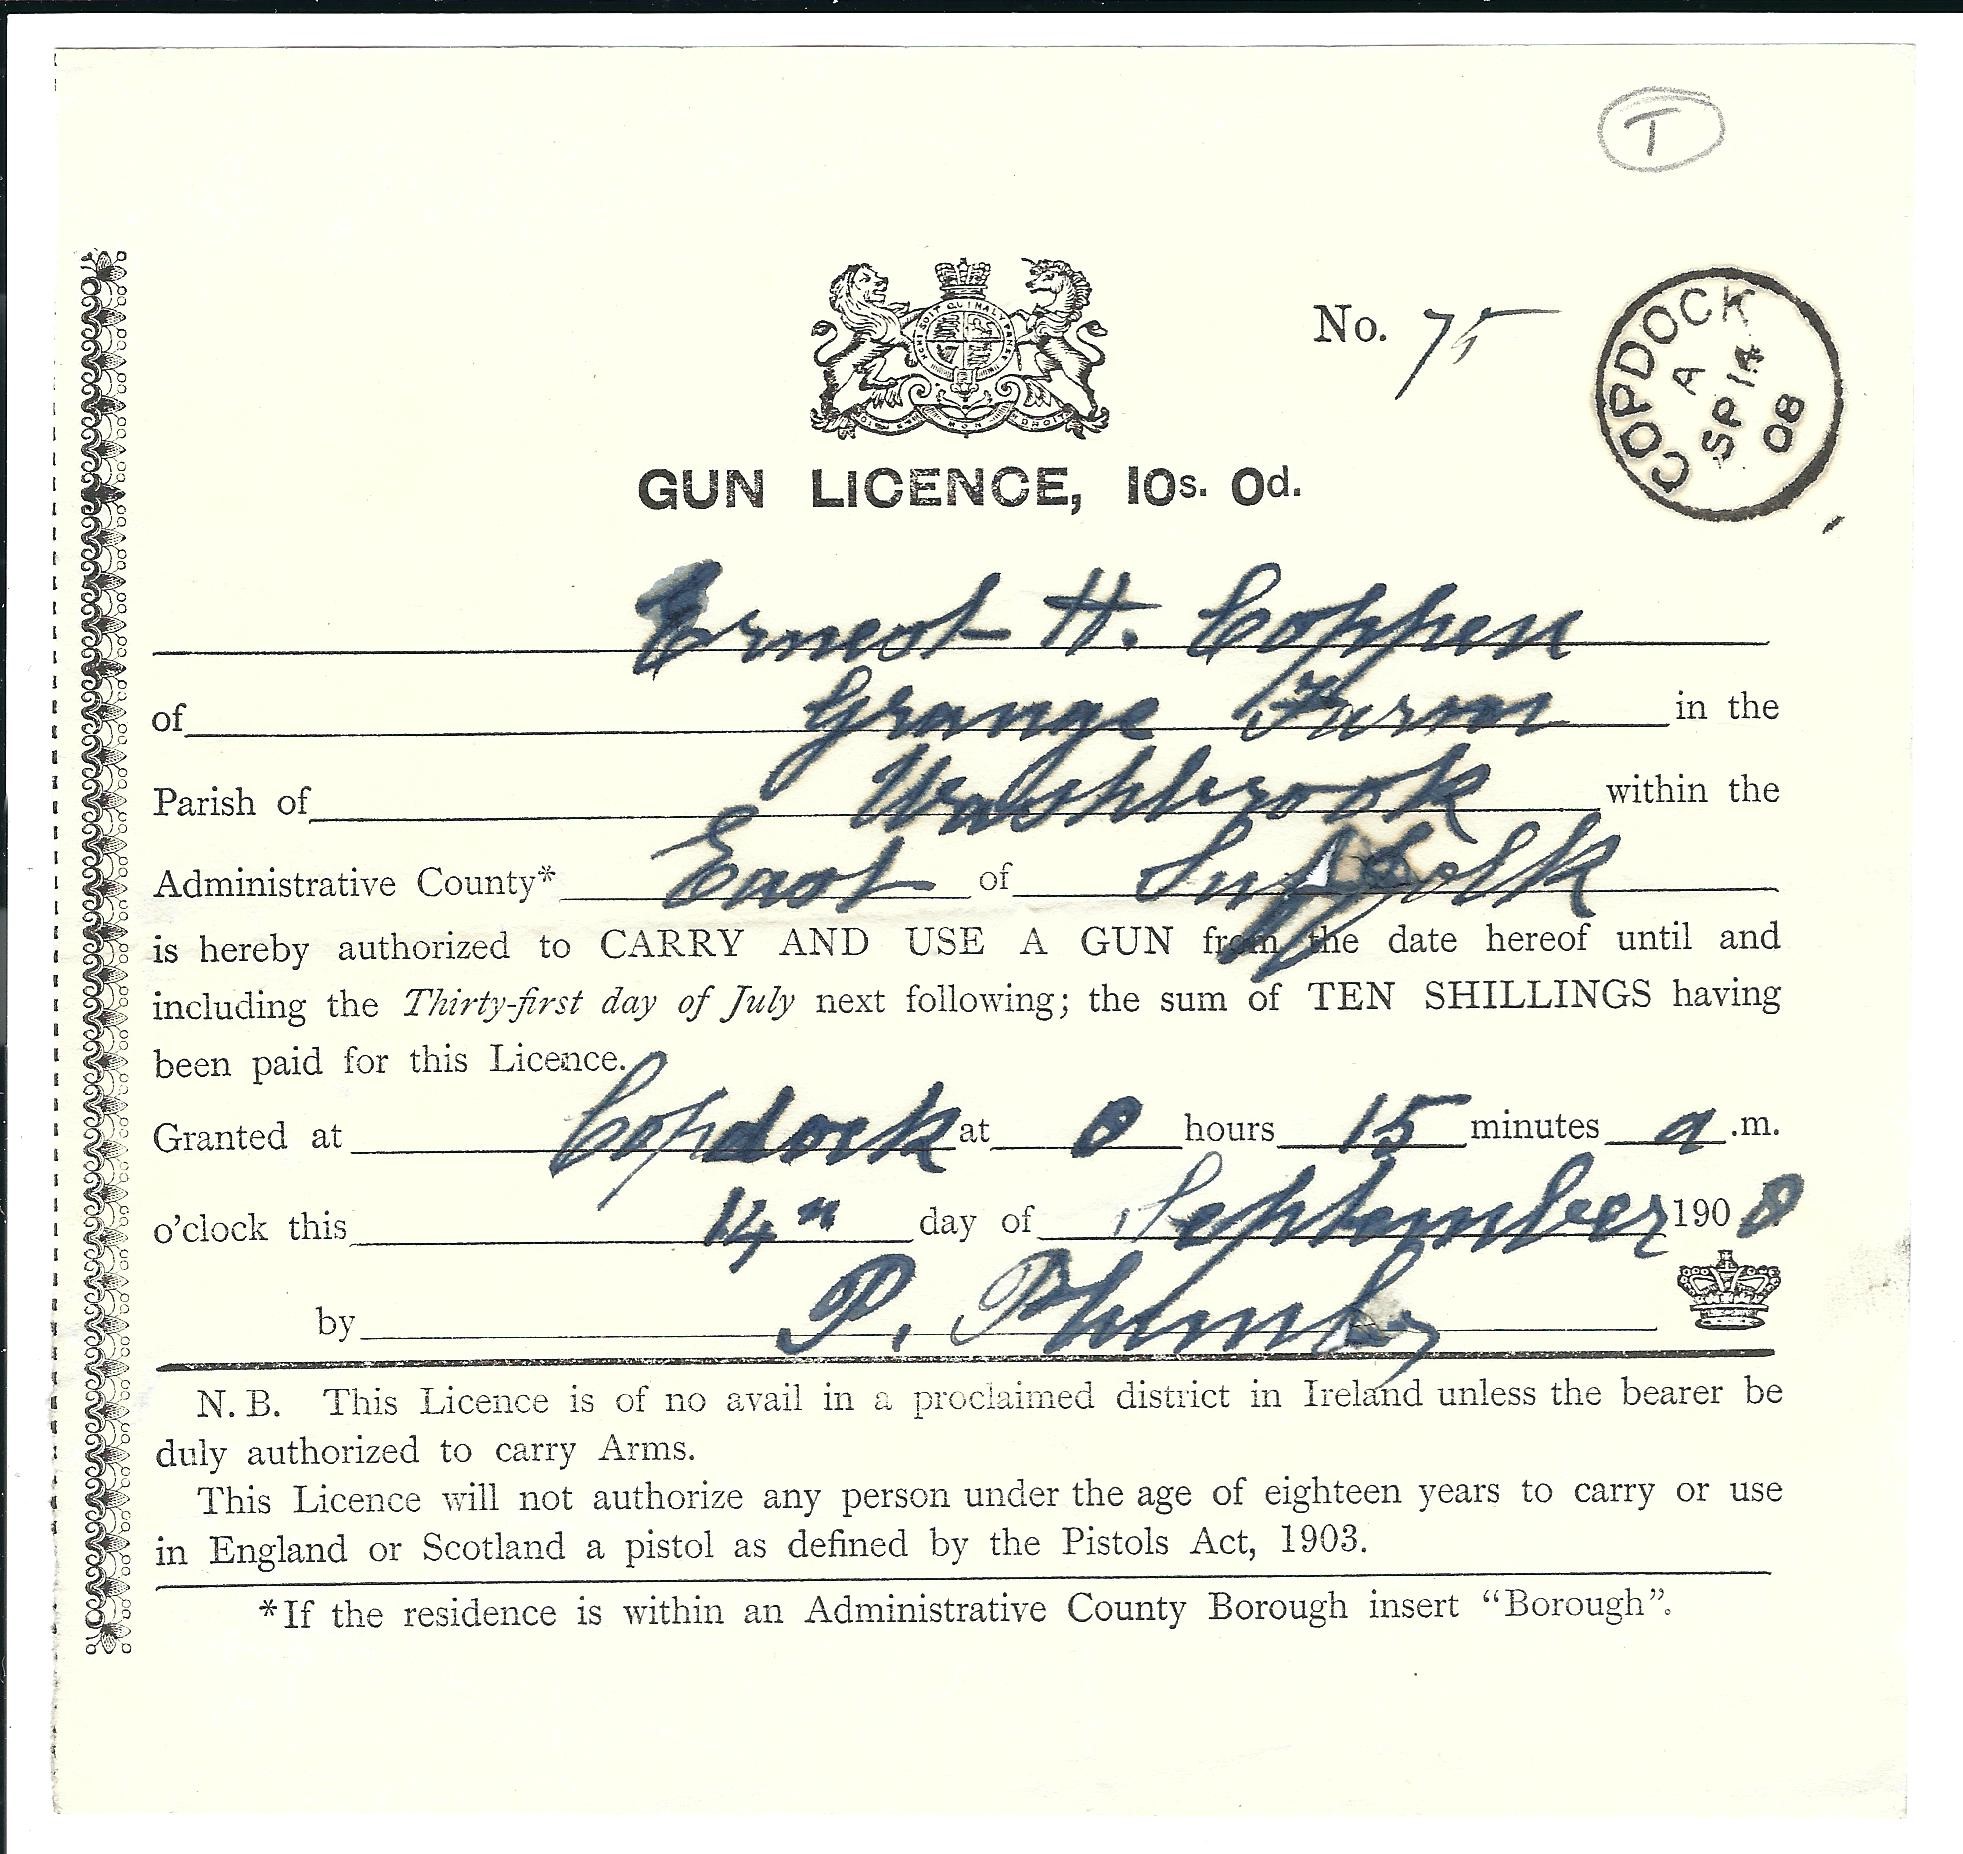 T
No. 75
COPDOCK
A
SP 14
08
GUN LICENCE, 10s. 0d.
Ernest H. Coppen
of Grange Farm in the
Parish of Washbrook within the
Administrative County* East of Suffolk
is hereby authorized to CARRY AND USE A GUN from the date hereof until and
including the Thirty-first day of July next following; the sum of TEN SHILLINGS having
been paid for this Licence.
Granted at Copdock at 8 hours 15 minutes a .m.
o'clock this 14th day of September 1908
by P. Plumby
N.B. This Licence is of no avail in a proclaimed district in Ireland unless the bearer be
duly authorized to carry Arms.
This Licence will not authorize any person under the age of eighteen years to carry or use
in England or Scotland a pistol as defined by the Pistols Act, 1903.
*If the residence is within an Administrative County Borough insert "Borough".